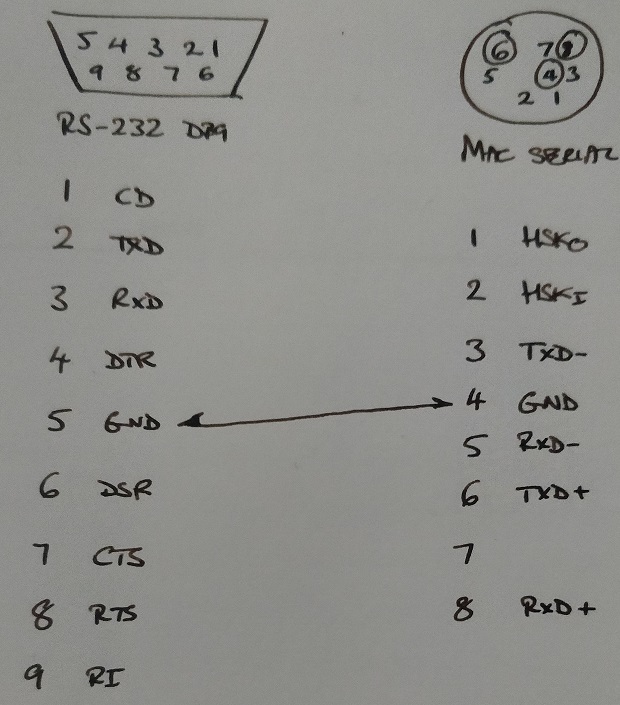 5 4 3 2 1
9 8 7 6
RS-232 DB9
1 CD
2 TXD
3 RXD
4 DTR
5 GND
6 DSR
7 CTS
8 RTS
9 RI
6 7 8
5 4 3
2 1
MAC SERIAL
1 HSKO
2 HSKI
3 TXD-
4 GND
5 RXD-
6 TXD+
7
8 RXD+